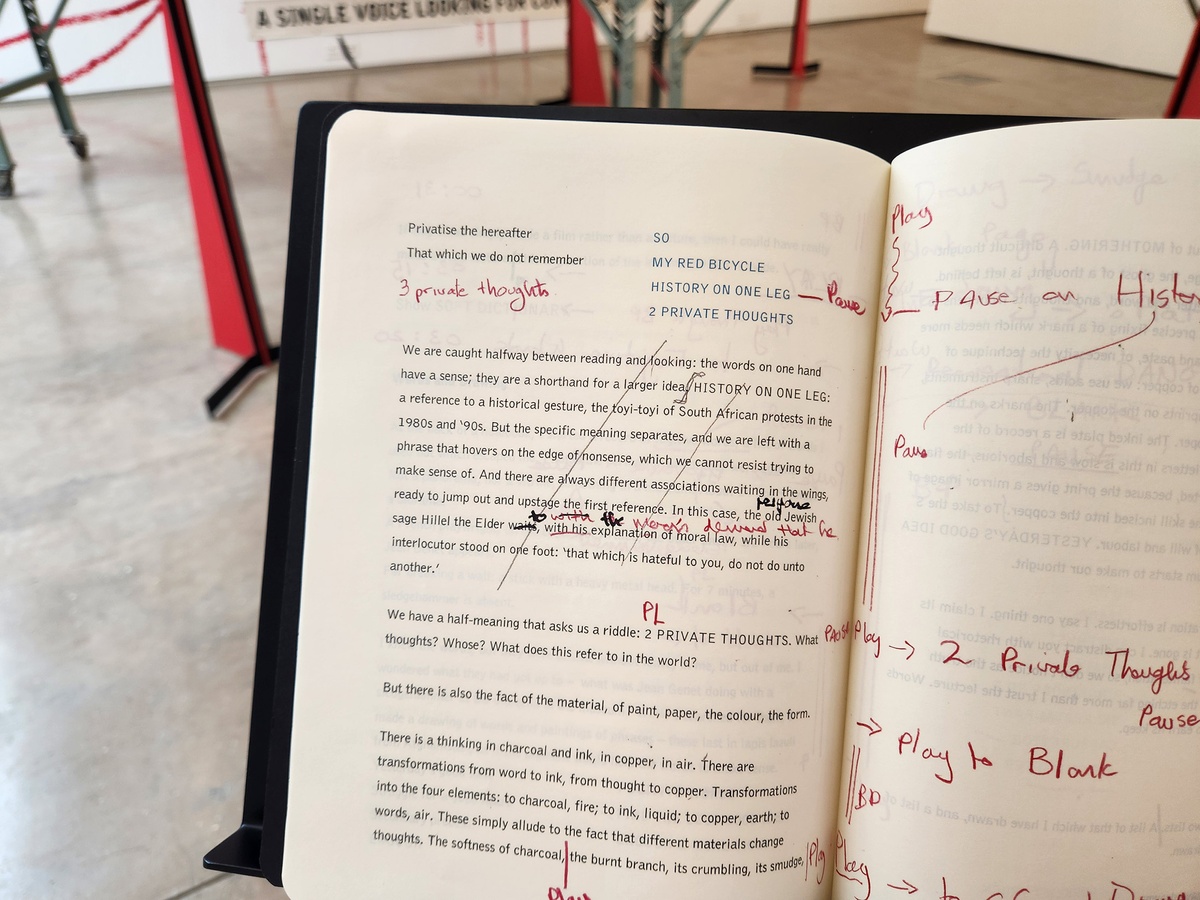 A SINGLE VOICE LOOKING FOR
Privatise the hereafter
That which we do not remember
3 private thoughts
SO
MY RED BICYCLE
HISTORY ON ONE LEG — Pause
2 PRIVATE THOUGHTS
We are caught halfway between reading and looking: the words on one hand
have a sense; they are a shorthand for a larger idea. HISTORY ON ONE LEG:
a reference to a historical gesture, the toyi-toyi of South African protests in the
1980s and '90s. But the specific meaning separates, and we are left with a
phrase that hovers on the edge of nonsense, which we cannot resist trying to
make sense of. And there are always different associations waiting in the wings,
ready to jump out and upstage the first reference. In this case, the old Jewish
to with the demand that he
sage Hillel the Elder waits, with his explanation of moral law, while his
interlocutor stood on one foot: 'that which is hateful to you, do not do unto
another.'
PL
We have a half-meaning that asks us a riddle: 2 PRIVATE THOUGHTS. What
thoughts? Whose? What does this refer to in the world?
But there is also the fact of the material, of paint, paper, the colour, the form.
There is a thinking in charcoal and ink, in copper, in air. There are
transformations from word to ink, from thought to copper. Transformations
into the four elements: to charcoal, fire; to ink, liquid; to copper, earth; to
words, air. These simply allude to the fact that different materials change
thoughts. The softness of charcoal, the burnt branch, its crumbling, its smudge,
Play
Play
Pause on
Pause
Pause Play → 2 Private Thoughts
Pause
→ Play to Blank
BD
Play → to